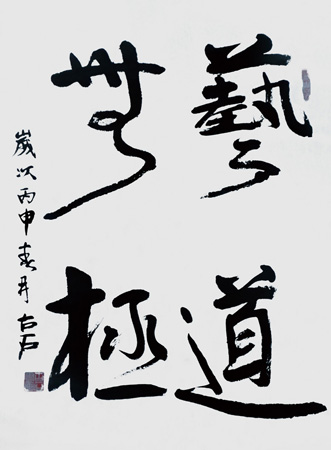 藝道
無極
歲次丙申春月